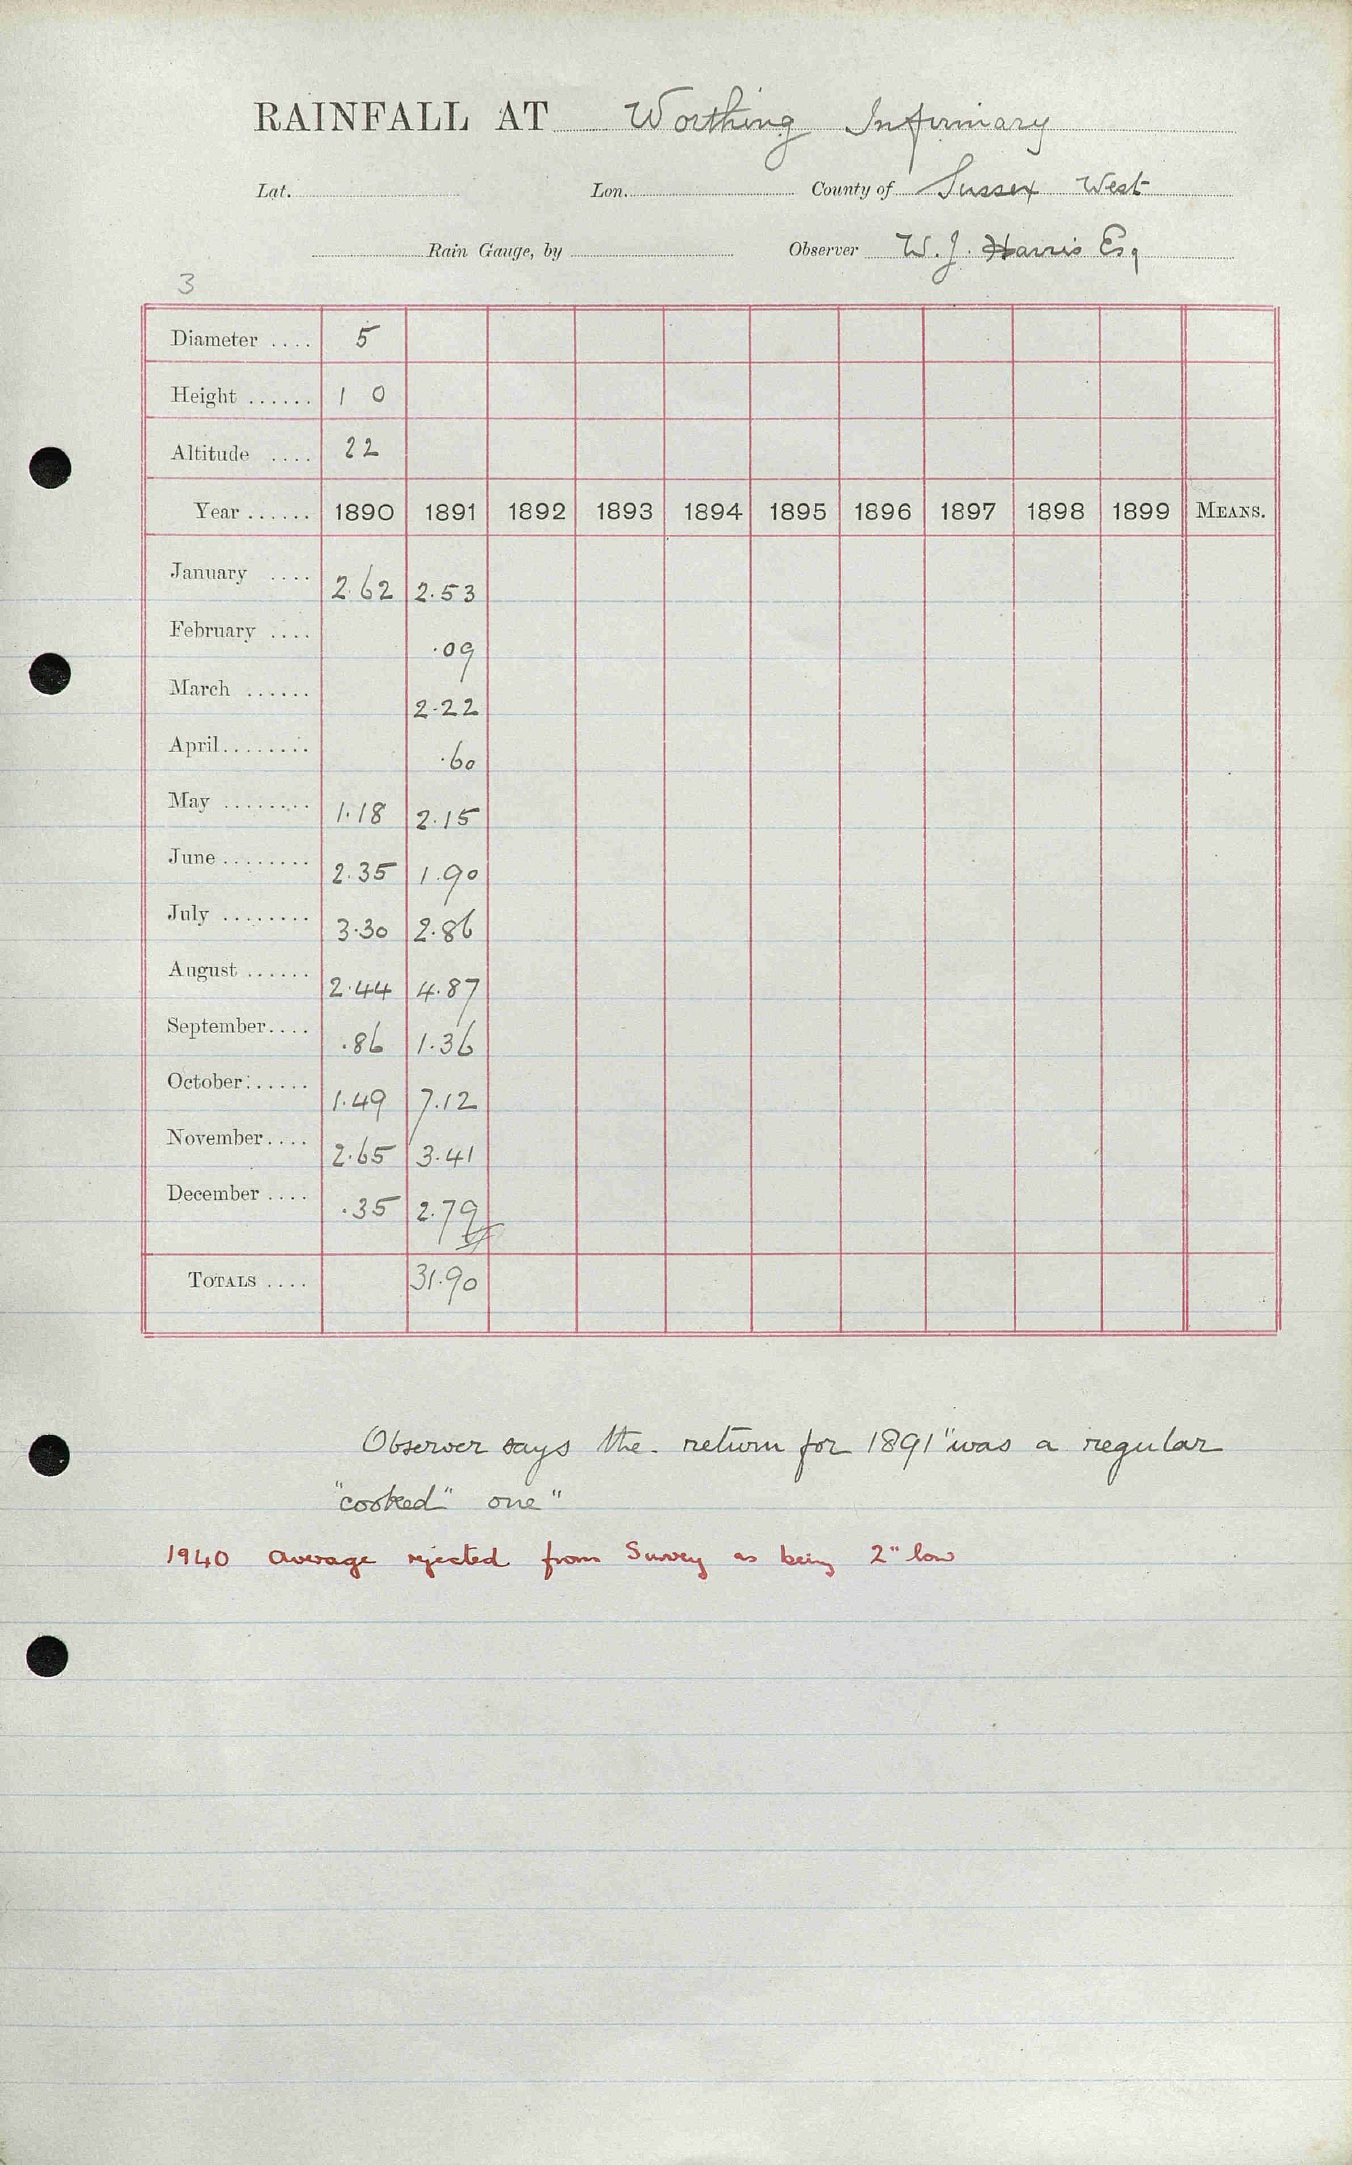 RAINFALL AT Worthing Infirmary
Lat. Lon. County of Sussex West
Rain Gauge, by Observer W. J. Harris Esq
3
Diameter .... 5
Height ...... 1 0
Altitude .... 22
Year ...... 1890 1891 1892 1893 1894 1895 1896 1897 1898 1899 MEANS.
January .... 2.62 2.53
February .... .09
March ...... 2.22
April ........ .60
May ........ 1.18 2.15
June ........ 2.35 1.90
July ........ 3.30 2.86
August ...... 2.44 4.87
September .... .86 1.36
October ...... 1.49 7.12
November .... 2.65 3.41
December .... .35 2.79
TOTALS .... 31.90
Observer says the return for 1891 "was a regular
"cooked" one"
1940 average rejected from Survey as being 2" low